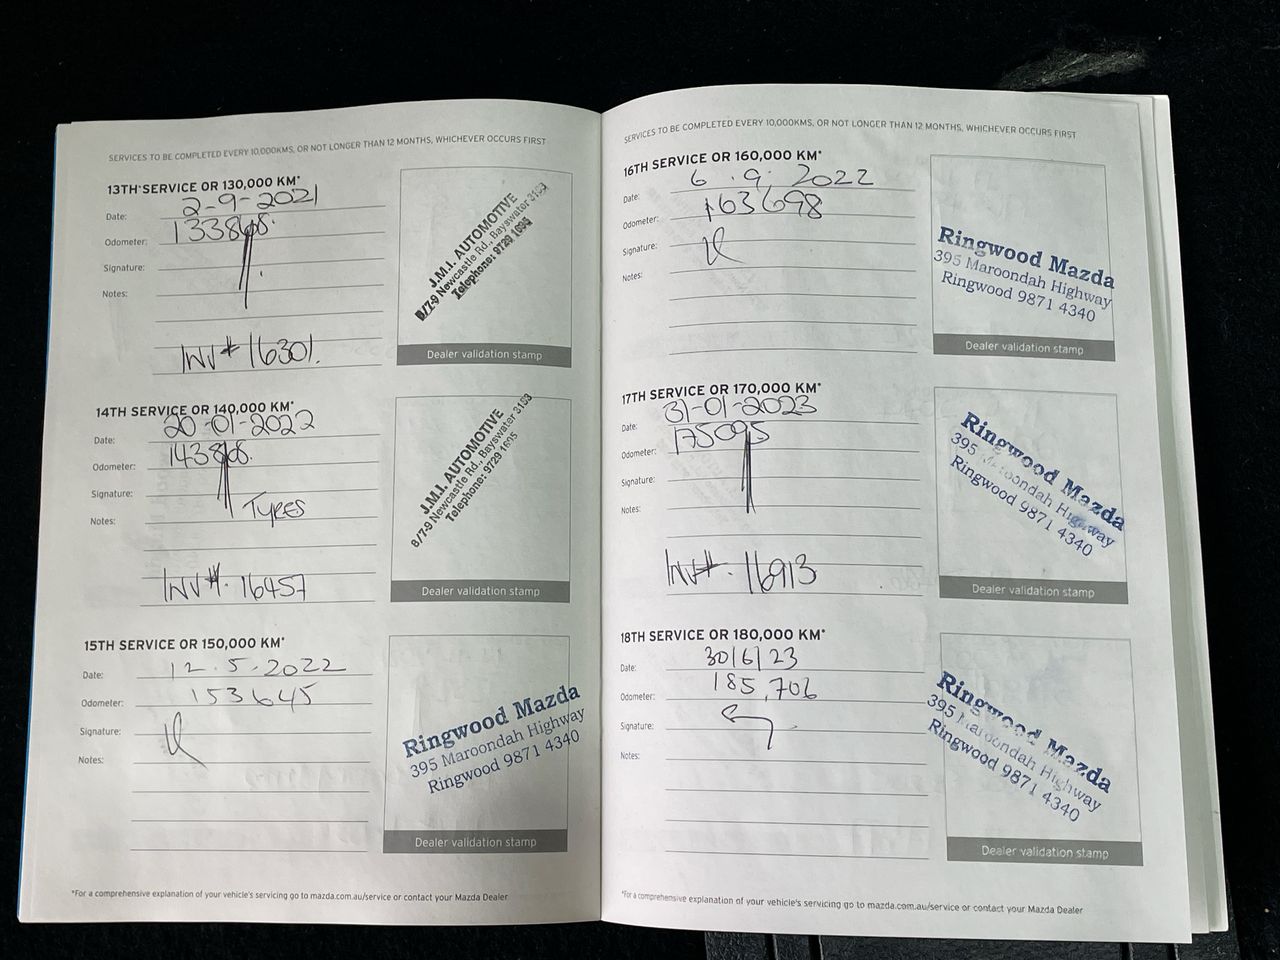 SERVICES TO BE COMPLETED EVERY 10,000KMS, OR NOT LONGER THAN 12 MONTHS, WHICHEVER OCCURS FIRST
13TH SERVICE OR 130,000 KM*
Date: 2-9-2021
Odometer: 133868.
Signature:
Notes:
INV# 16301.
J.M.I. AUTOMOTIVE
8/7-9 Newcastle Rd., Bayswater 3153
Telephone: 9729 1695
Dealer validation stamp
14TH SERVICE OR 140,000 KM*
Date: 20-01-2022
Odometer: 143868.
Signature:
Notes: TYRES
INV#. 16457
J.M.I. AUTOMOTIVE
8/7-9 Newcastle Rd., Bayswater 3153
Telephone: 9729 1695
Dealer validation stamp
15TH SERVICE OR 150,000 KM*
Date: 12.5.2022
Odometer: 153645
Signature:
Notes:
Ringwood Mazda
395 Maroondah Highway
Ringwood 9871 4340
Dealer validation stamp
*For a comprehensive explanation of your vehicle's servicing go to mazda.com.au/service or contact your Mazda Dealer
SERVICES TO BE COMPLETED EVERY 10,000KMS, OR NOT LONGER THAN 12 MONTHS, WHICHEVER OCCURS FIRST
16TH SERVICE OR 160,000 KM*
Date: 6.9.2022
Odometer: 163698
Signature:
Notes:
Ringwood Mazda
395 Maroondah Highway
Ringwood 9871 4340
Dealer validation stamp
17TH SERVICE OR 170,000 KM*
Date: 31-01-2023
Odometer: 175095
Signature:
Notes:
INV#. 16913
Ringwood Mazda
395 Maroondah Highway
Ringwood 9871 4340
Dealer validation stamp
18TH SERVICE OR 180,000 KM*
Date: 30/6/23
Odometer: 185,706
Signature:
Notes:
Ringwood Mazda
395 Maroondah Highway
Ringwood 9871 4340
Dealer validation stamp
*For a comprehensive explanation of your vehicle's servicing go to mazda.com.au/service or contact your Mazda Dealer